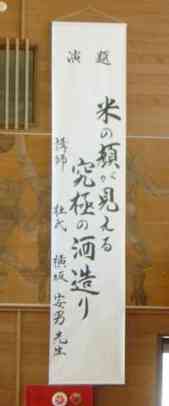 演題
米の顔が見える
究極の酒造り
講師 杜氏 横坂安男先生